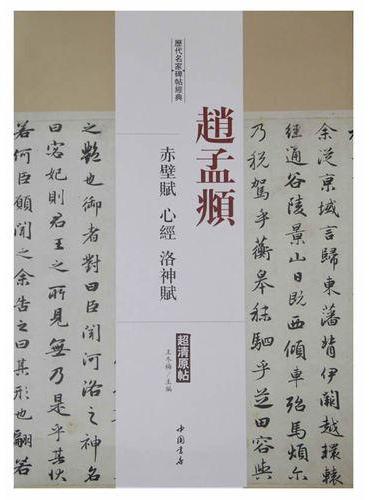 歷代名家碑帖經典
趙孟頫
赤壁賦 心經 洛神賦
超清原帖
王冬梅 主編
中國書店
余從京域言歸東藩背伊闕越轘轅
經通谷陵景山日既西傾車殆馬煩尔
乃稅駕乎蘅皋秣駟乎芝田容與
之艷也御者對曰臣聞河洛之神名
曰宓妃則君王之所見無乃是乎其狀
若何臣願聞之余告之曰其形也翩若